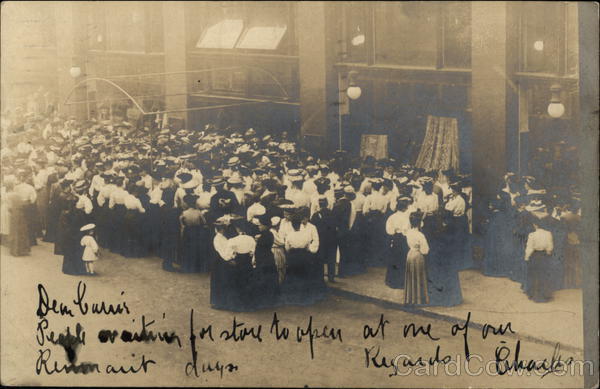 Dear Carrie
People waiting for store to open at one of our
Remnant days. Regards Charles
CardCow.com